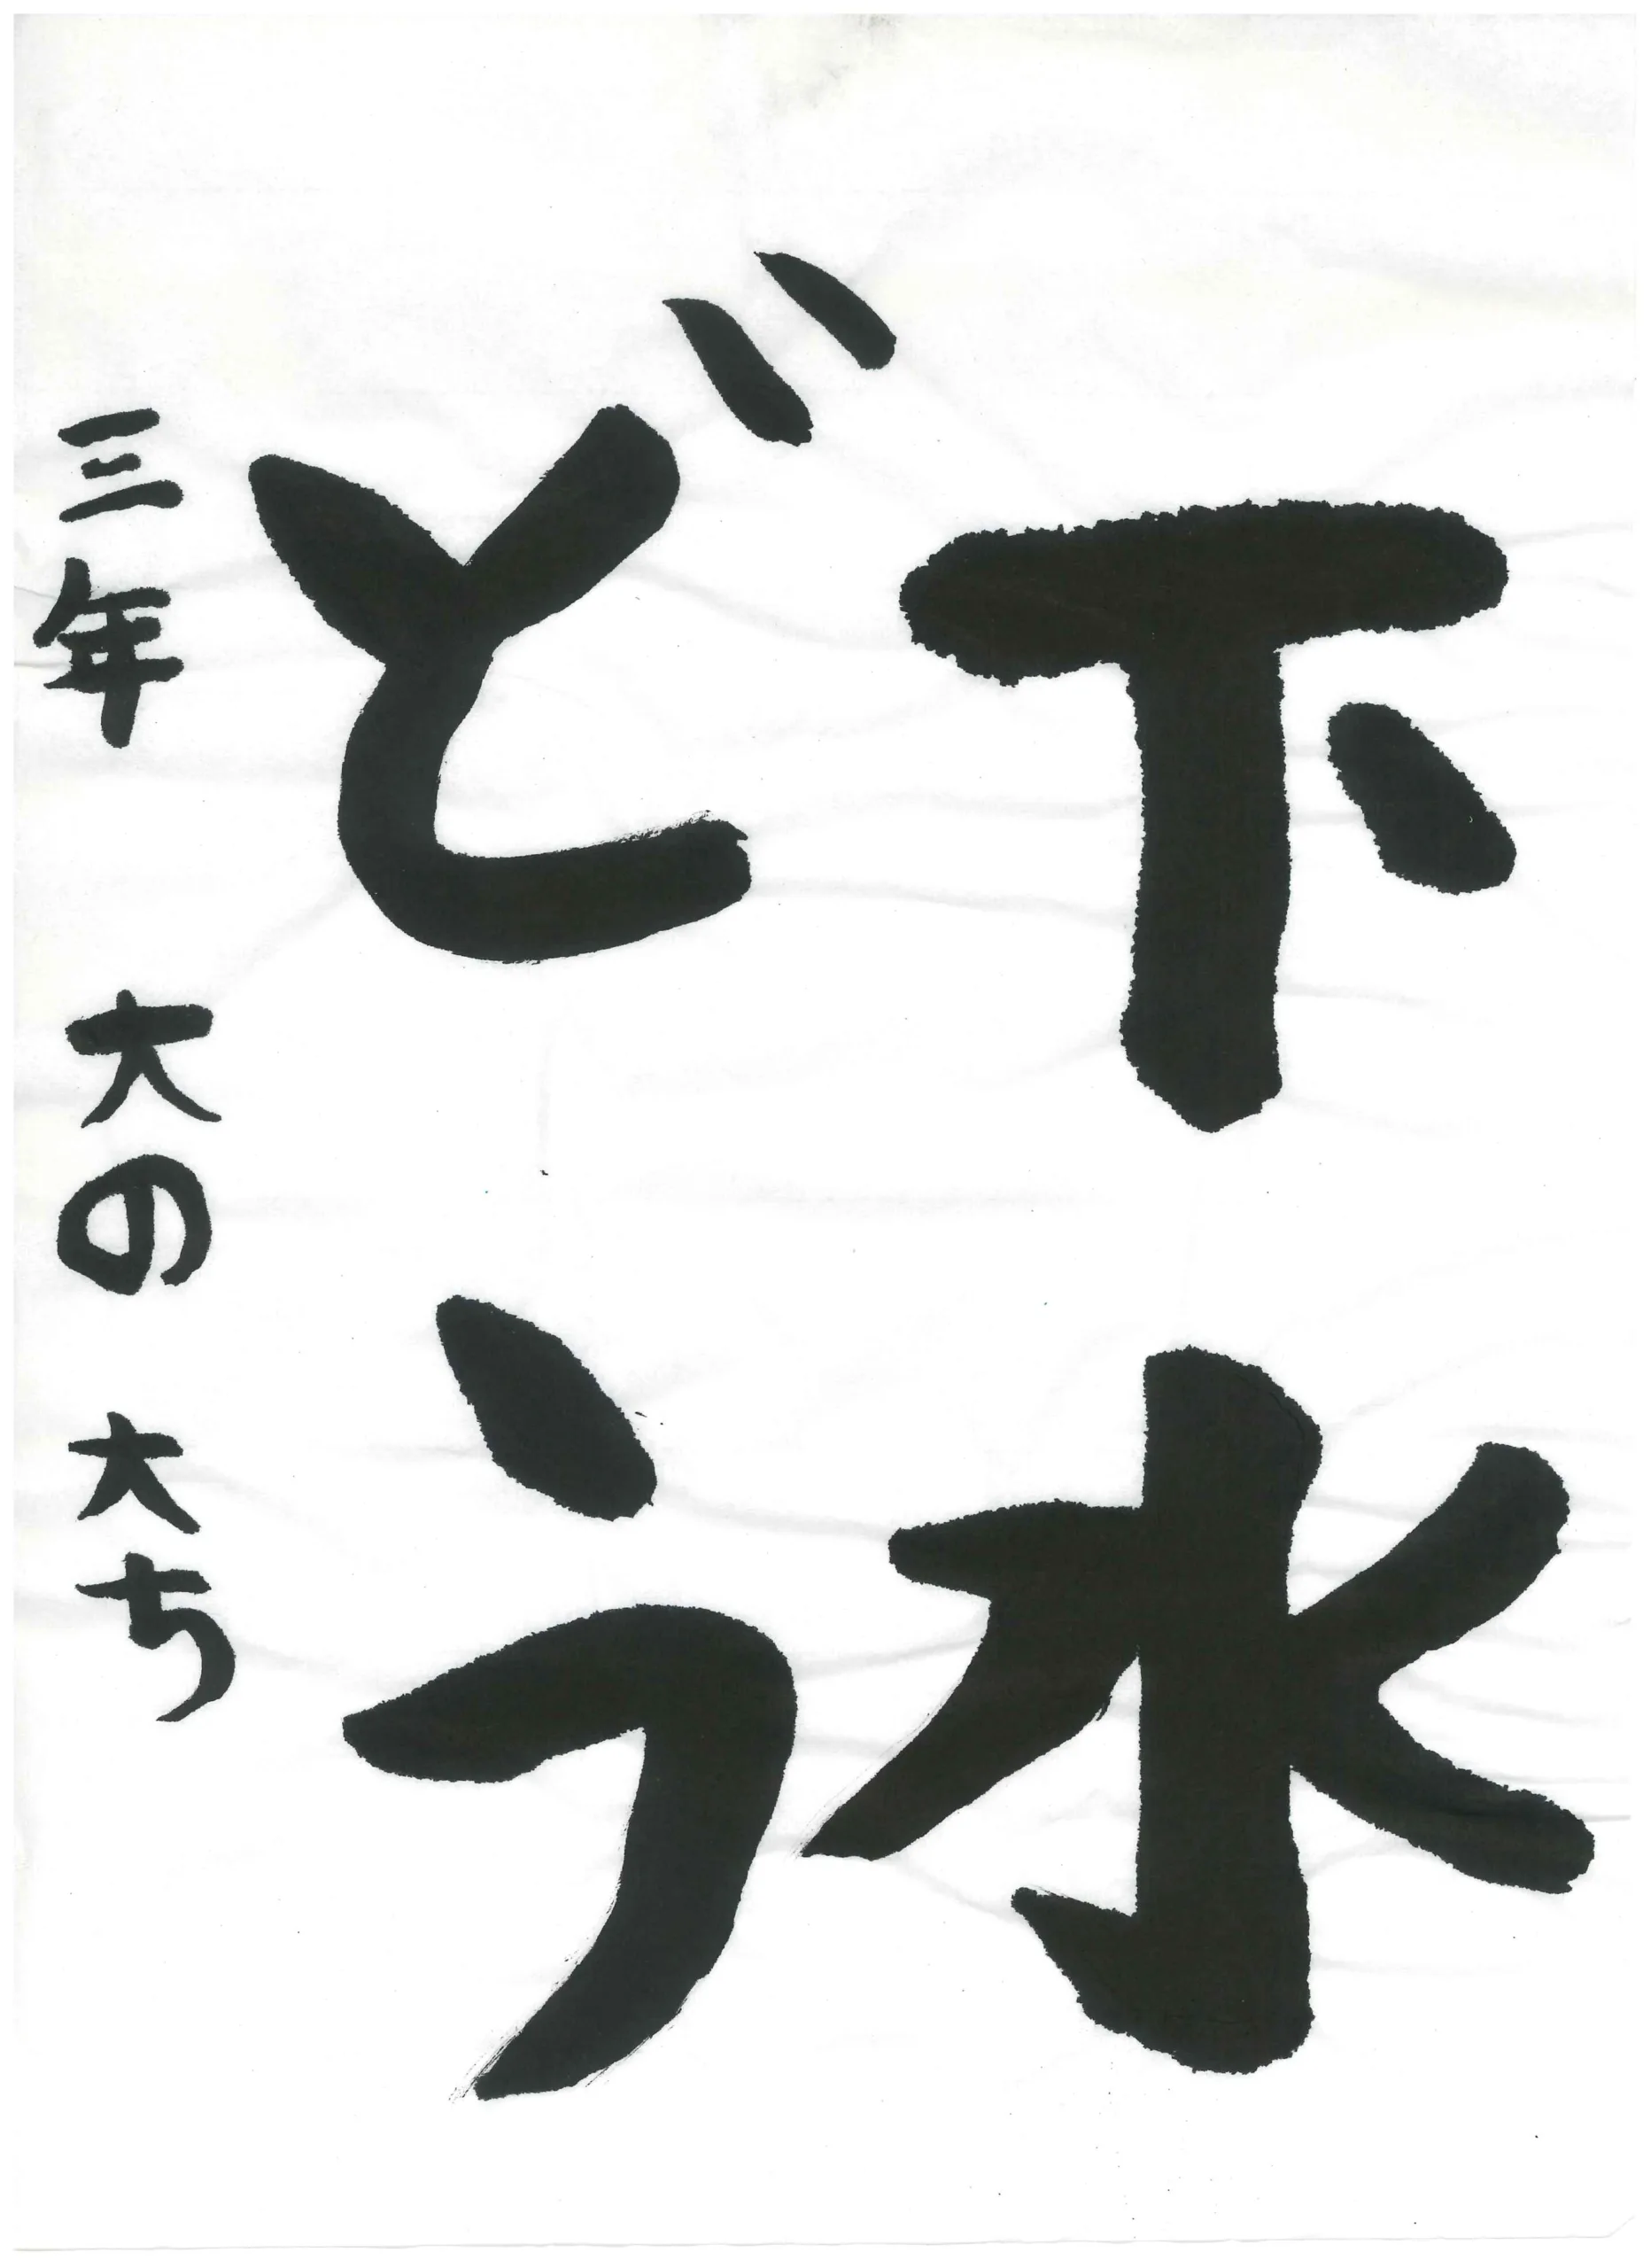 下水
どう
三年 大の 大ち